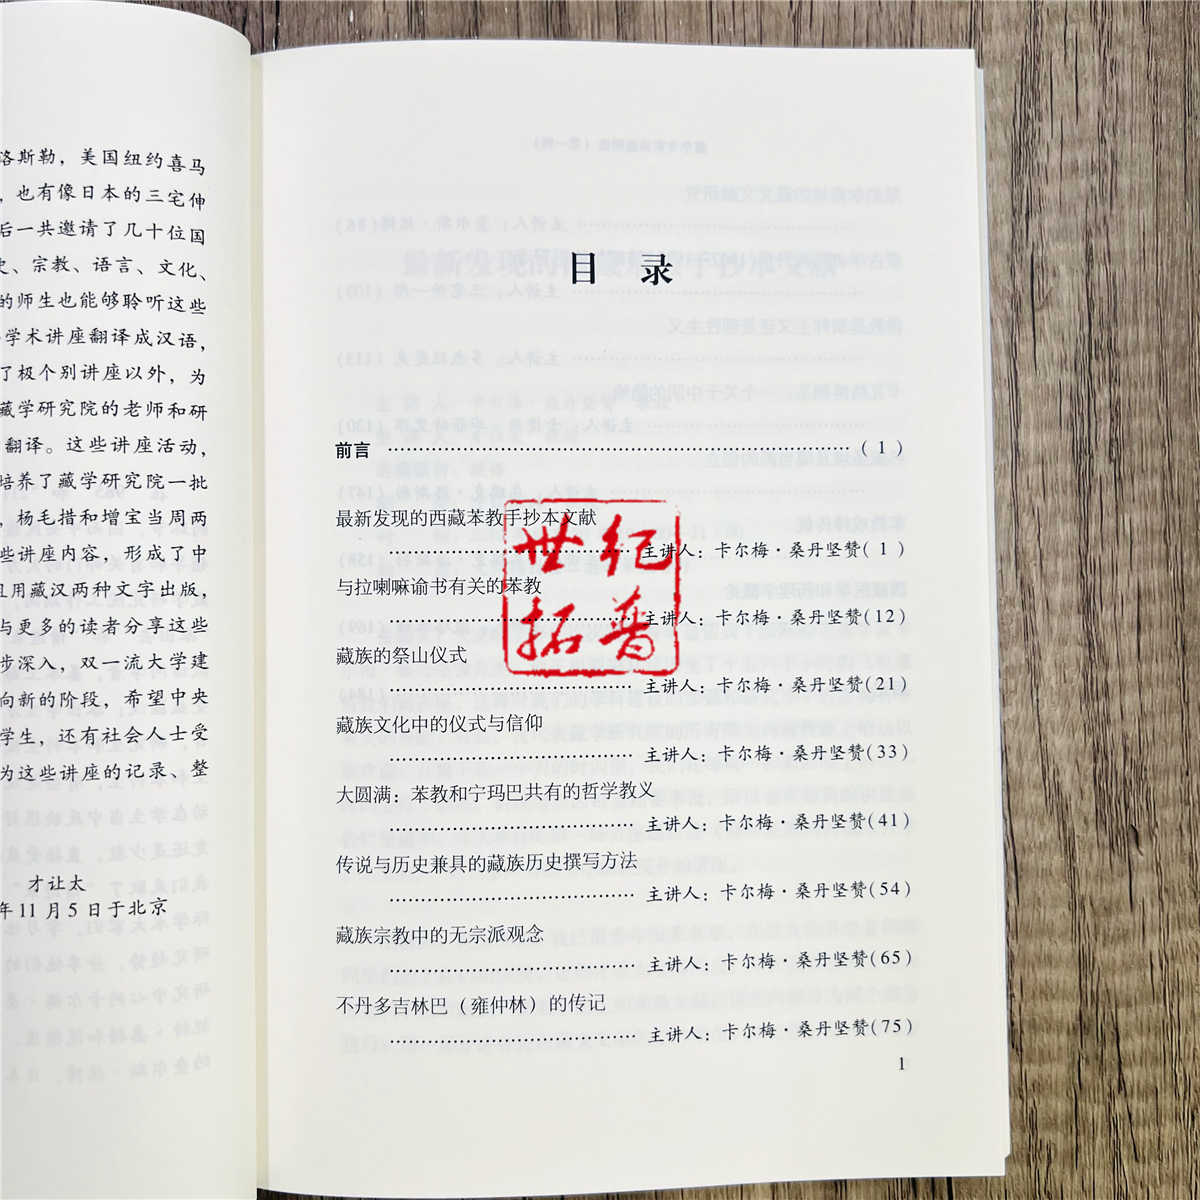 洛斯勒，美国纽约喜马
，也有像日本的三宅伸
后一共邀请了几十位国
史、宗教、语言、文化、
的师生也能够聆听这些
学术讲座翻译成汉语，
了极个别讲座以外，为
藏学研究院的老师和研
翻译。这些讲座活动，
培养了藏学研究院一批
，杨毛措和增宝当周两
些讲座内容，形成了中
且用藏汉两种文字出版，
与更多的读者分享这些
步深入，双一流大学建
向新的阶段，希望中央
学生，还有社会人士受
为这些讲座的记录、整
才让太
年11月5日于北京
目 录
前言 ……………………………………………… ( 1 )
最新发现的西藏苯教手抄本文献
……………………… 主讲人：卡尔梅·桑丹坚赞( 1 )
与拉喇嘛谕书有关的苯教
……………………… 主讲人：卡尔梅·桑丹坚赞(12)
藏族的祭山仪式
……………………… 主讲人：卡尔梅·桑丹坚赞(21)
藏族文化中的仪式与信仰
……………………… 主讲人：卡尔梅·桑丹坚赞(33)
大圆满：苯教和宁玛巴共有的哲学教义
……………………… 主讲人：卡尔梅·桑丹坚赞(41)
传说与历史兼具的藏族历史撰写方法
……………………… 主讲人：卡尔梅·桑丹坚赞(54)
藏族宗教中的无宗派观念
……………………… 主讲人：卡尔梅·桑丹坚赞(65)
不丹多吉林巴（雍仲林）的传记
……………………… 主讲人：卡尔梅·桑丹坚赞(75)
1
世纪
拓普